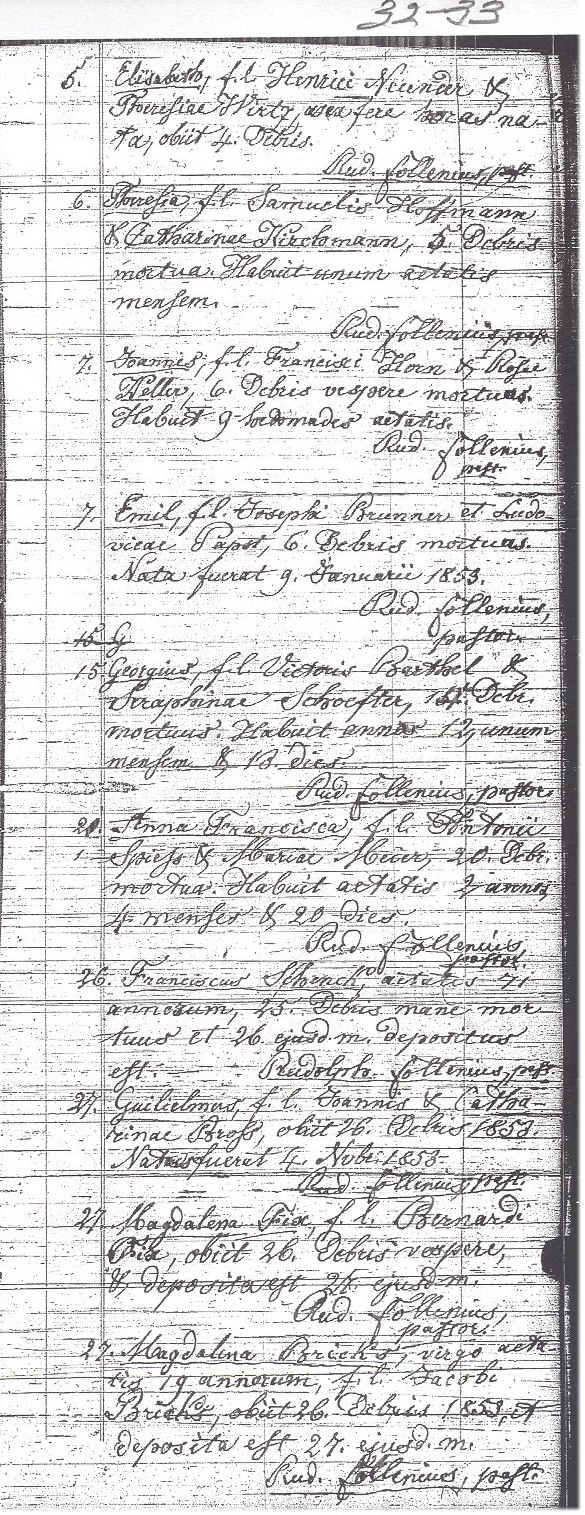 32-33
5. Elisabeth, f. l. Henrici &
Theresiae Wirtz, fere horas na-
ta, obiit 4. Debris.
Rud. Follenius, past.
6. Theresia, f. l. Samuelis Hoffmann
& Catharinae Kirchmann, 5. Debris
mortua. Habuit unum aetatis
mensem.
Rud. Follenius, past.
7. Joannis, f. l. Francisci Horn & Rosae
Weller, 6. Debris vespere mortuus.
Habuit 9 hebdomades aetatis.
Rud. Follenius,
past.
7. Emil, f. l. Josephi Brunner et Ludo-
vicae Papst, 6. Debris mortuus.
Nata fuerat 9. Januarii 1853.
Rud. Follenius,
pastor.
15 G
15 Georgius, f. l. Victoris Barthel &
Seraphinae Schoefter, Debr.
mortuus. Habuit annos 12, unum
mensem & 13 dies.
Rud. Follenius, pastor.
21. Anna Francisca, f. l. Antonii
Spiess & Mariae Meier, 20. Debr.
mortua. Habuit aetatis 2 annos,
4 menses & 20 dies.
Rud. Follenius,
pastor.
26. Franciscus Schench, aetatis 71
annorum, 25. Debris mane mor
tuus et 26 ejusd. m. depositus
est. Rudolph. Follenius, past.
27. Guilielmus, f. l. Joannis & Catha-
rinae Bross, obiit 26. Debris 1853.
Natus fuerat 4. Nobr. 1853
Rud. Follenius, past.
27. Magdalena Fix, f. l. Bernardi
Fix, obiit 26. Debris vespere,
& deposita est 27. ejusd. m.
Rud. Follenius,
pastor.
27. Magdalena Brichs, virgo aeta-
tis 19 annorum, f. l. Jacobi
Brichs, obiit 26. Debris 1853, et
deposita est 27. ejusd. m.
Rud. Follenius, past.